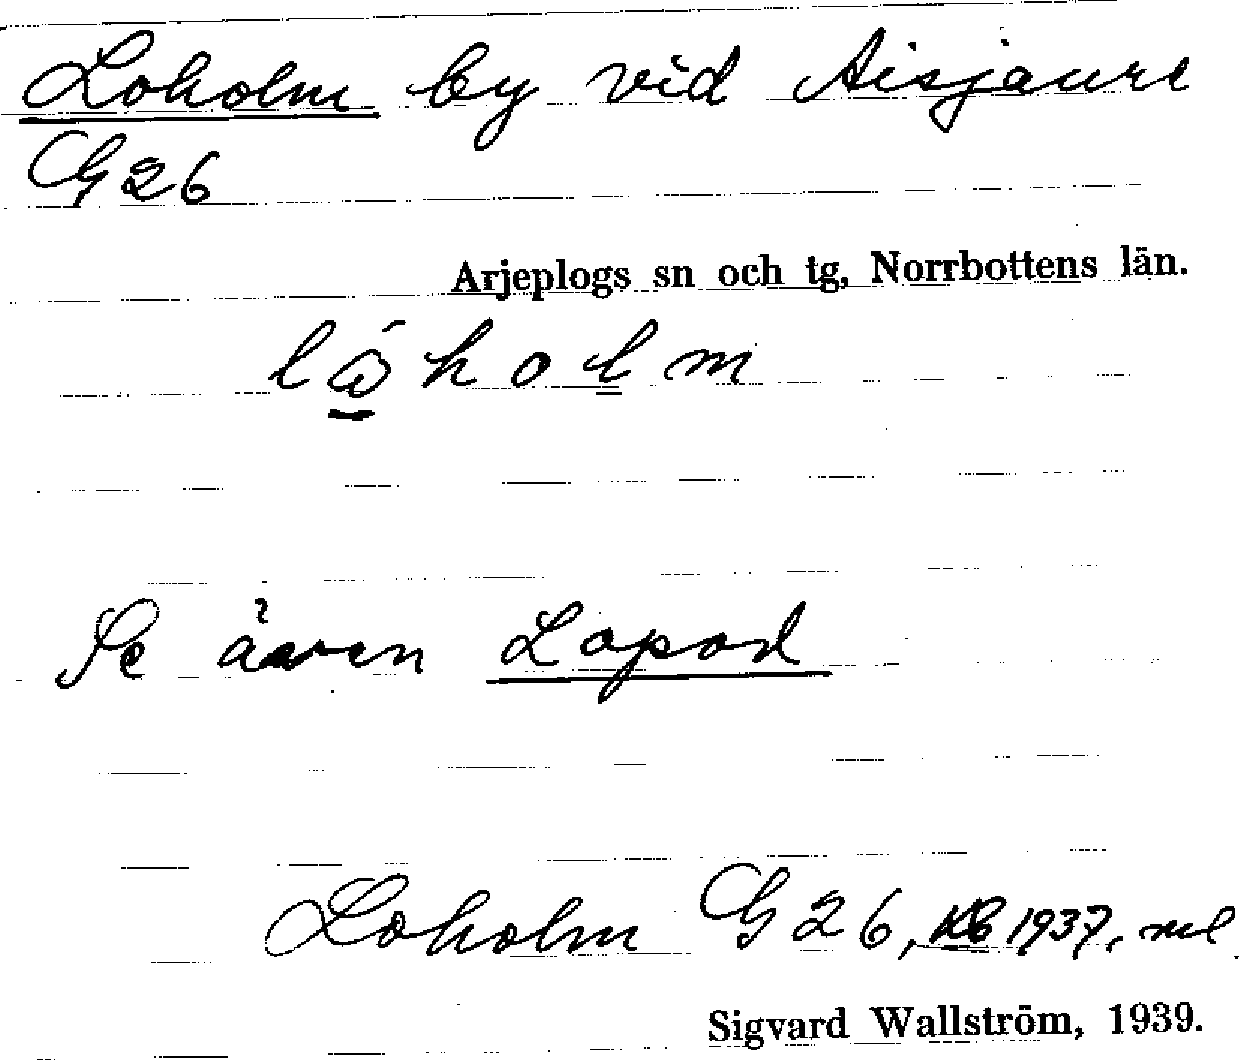 Loholm by vid Aisjaure
G26
Arjeplogs sn och tg, Norrbottens län.
låholm
Se även Lopod
Loholm G26, KB 1937, ml
Sigvard Wallström, 1939.